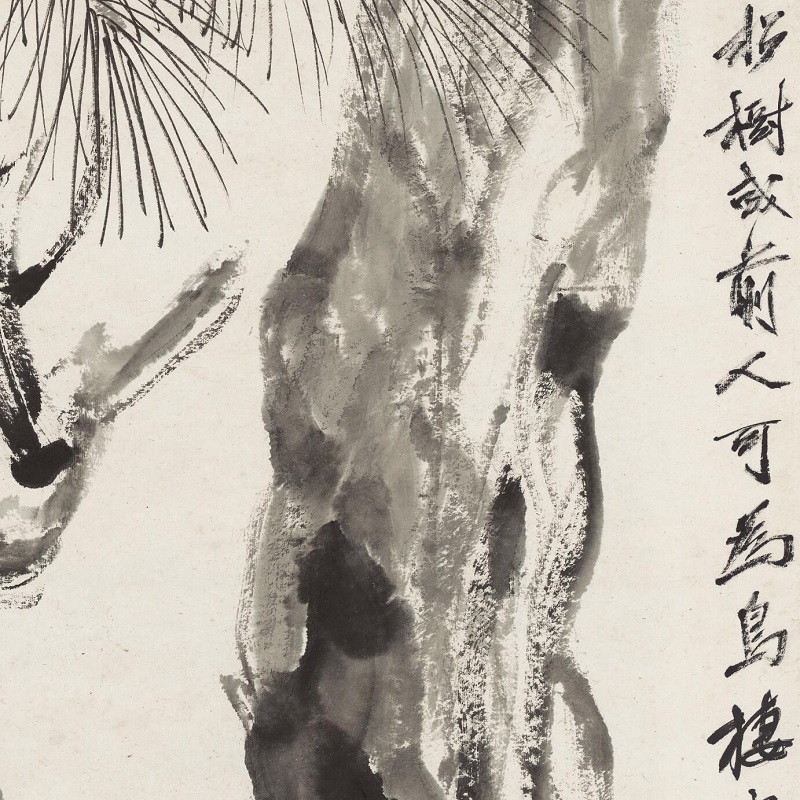 松樹或前人可為鳥棲